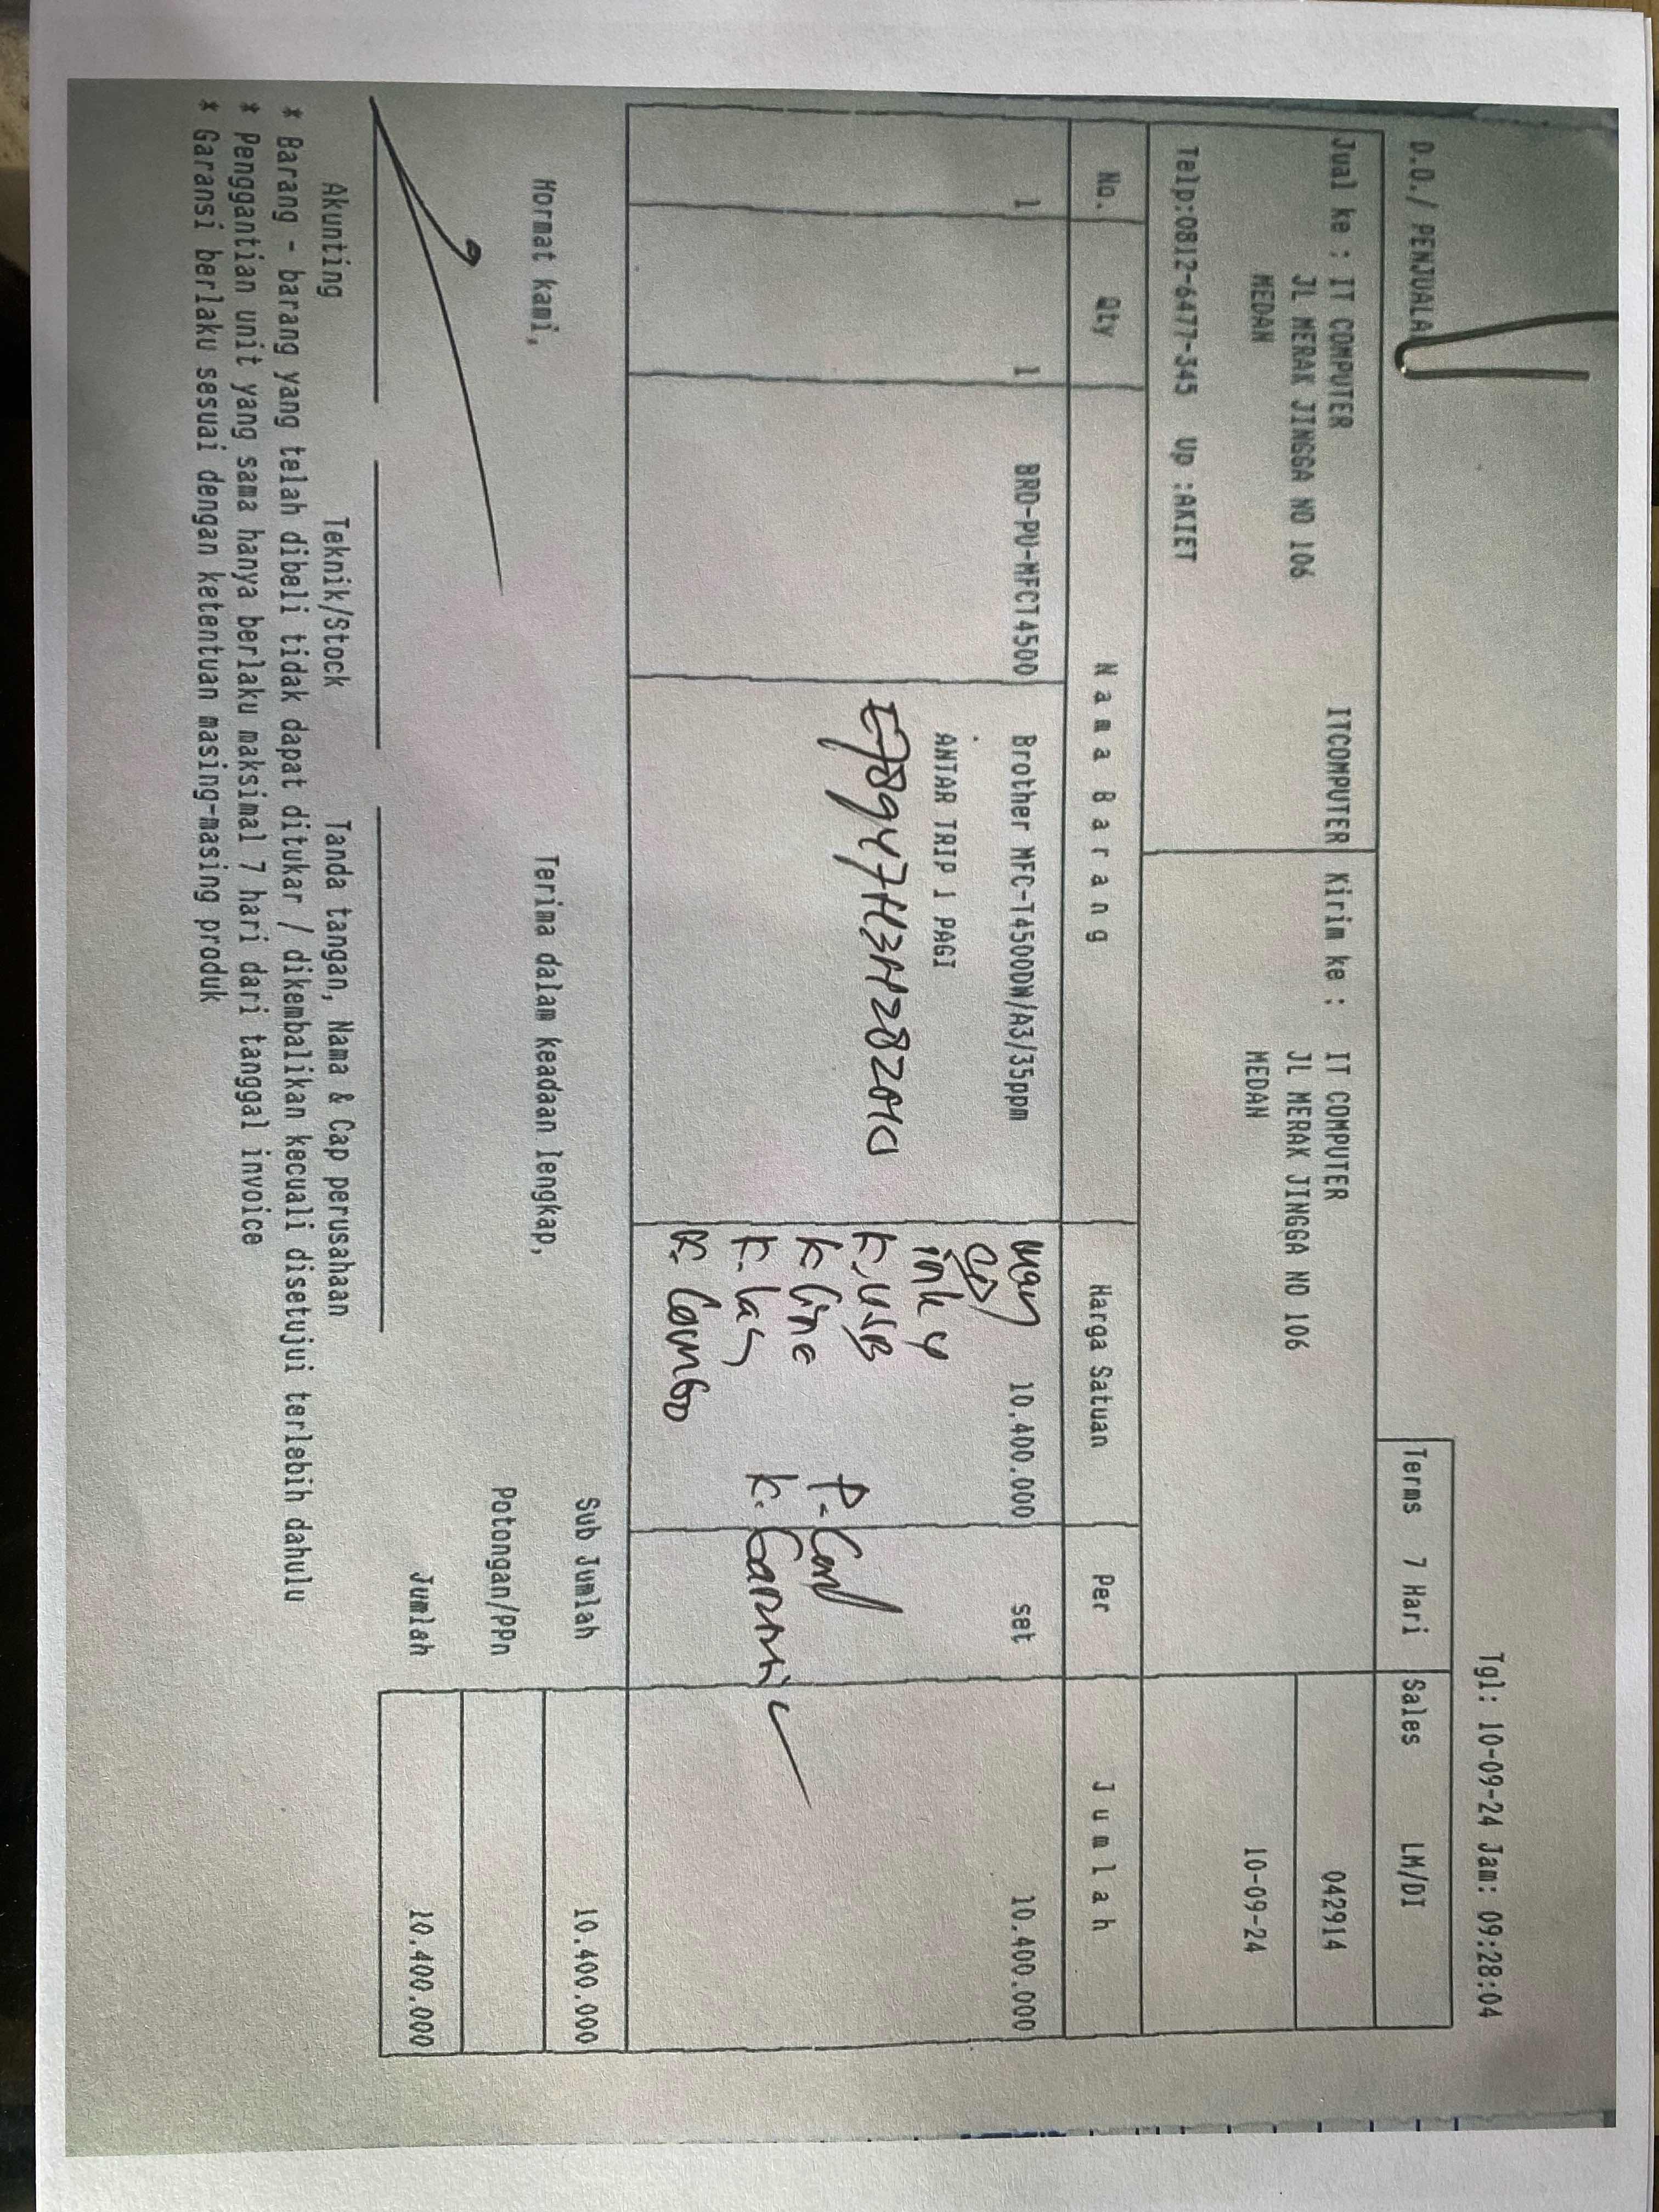 Tgl: 10-09-24 Jam: 09:28:04
D.O./ PENJUALA
Terms 7 Hari Sales LM/DI
Jual ke : IT COMPUTER ITCOMPUTER Kirim ke : IT COMPUTER 042914
JL MERAK JINGGA NO 106 JL MERAK JINGGA NO 106
MEDAN MEDAN 10-09-24
Telp:0812-6477-345 Up :AKIET
No. Qty Nama Barang Harga Satuan Per Jumlah
1 1 BRD-PU-MFCT4500 Brother MFC-T4500DW/A3/35ppm 10.400.000 set 10.400.000
ANTAR TRIP 1 PAGI
ink 4
K. USB
K. Line P. Cord
K. Garansi
K. Combo
Sub Jumlah 10.400.000
Hormat kami, Terima dalam keadaan lengkap,
Potongan/PPn
Jumlah 10.400.000
Akunting Teknik/Stock Tanda tangan, Nama & Cap perusahaan
* Barang - barang yang telah dibeli tidak dapat ditukar / dikembalikan kecuali disetujui terlebih dahulu
* Penggantian unit yang sama hanya berlaku maksimal 7 hari dari tanggal invoice
* Garansi berlaku sesuai dengan ketentuan masing-masing produk